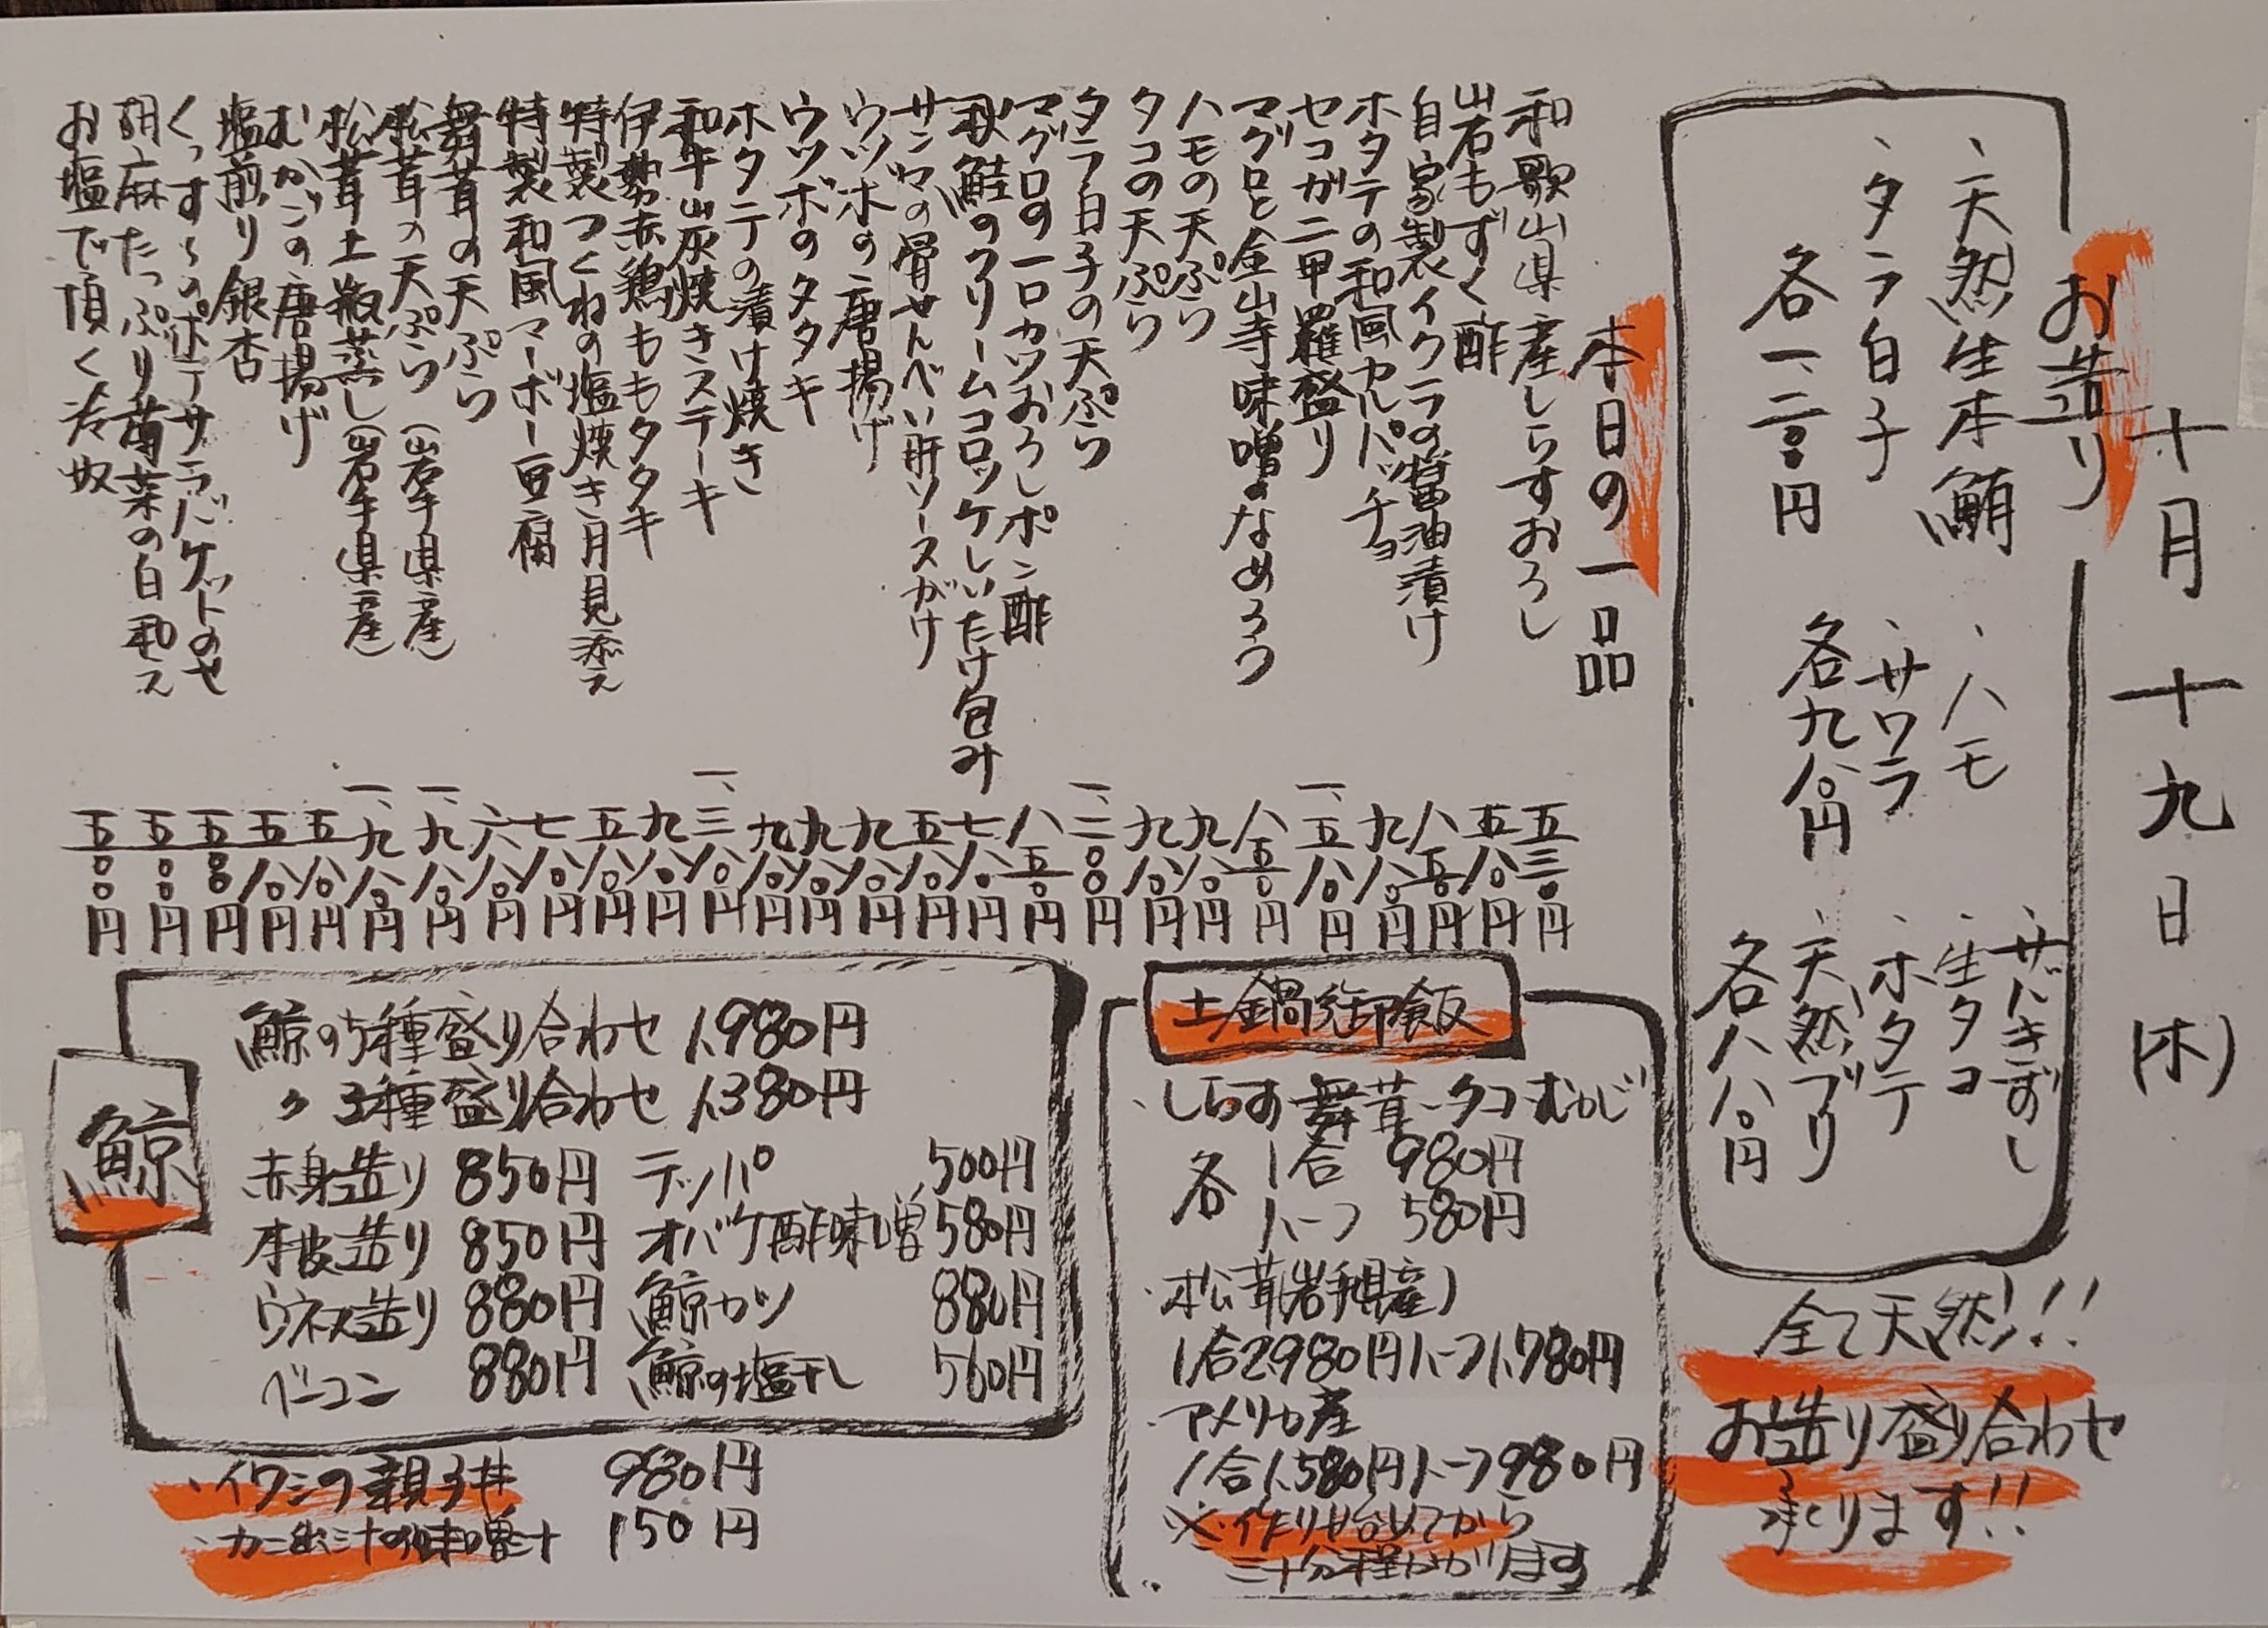 十月十九日(木)
お造り
、天然生本鮪
、タラ白子
各一、二〇〇円
、ハモ
、サワラ
各九八〇円
、サバきずし
、生タコ
、ホタテ
、天然ブリ
各八八〇円
全て天然!!
お造り盛り合わせ
承ります!!
本日の一品
和歌山県産しらすおろし 五三〇円
岩もずく酢 五八〇円
自家製イクラの醤油漬け 八五〇円
ホタテの和風カルパッチョ 九八〇円
セコガニ甲羅盛り 一、五八〇円
マグロと金山寺味噌のなめろう 八五〇円
ハモの天ぷら 九八〇円
タコの天ぷら 九八〇円
タラ白子の天ぷら 一、二〇〇円
マグロの一口カツおろしポン酢 八五〇円
秋鮭のクリームコロッケしいたけ包み 七八〇円
サンマの骨せんべい肝ソースがけ 五八〇円
ウツボの唐揚げ 九八〇円
ウツボのタタキ 九八〇円
ホタテの漬け焼き 九八〇円
和牛山灰焼きステーキ 一、三八〇円
伊勢赤鶏ももタタキ 九八〇円
特製つくねの塩焼き月見添え 五八〇円
特製和風マーボー豆腐 七八〇円
舞茸の天ぷら 六八〇円
松茸の天ぷら(岩手県産) 一、九八〇円
松茸土瓶蒸し(岩手県産) 一、九八〇円
むかごの唐揚げ 五八〇円
塩煎り銀杏 五八〇円
くっすんのポテサラバケットのせ 五〇〇円
胡麻たっぷり菊菜の白和え 五〇〇円
お塩で頂く冷奴 五〇〇円
土鍋御飯
、しらす・舞茸・タコ・むかご
各 1合 980円
ハーフ 580円
・松茸(岩手県産)
1合2,980円ハーフ1,780円
・アメリカ産
1合1,580円ハーフ980円
※作り始めてから
三十分程かかります
鯨
鯨の5種盛り合わせ 1,980円
〃 3種盛り合わせ 1,380円
赤身造り 850円 テッパ 500円
本皮造り 850円 オバケ酢味噌 580円
ウネス造り 880円 鯨カツ 880円
ベーコン 880円 鯨の塩干し 560円
・イワシの親子丼 980円
・カニ出汁の味噌汁 150円